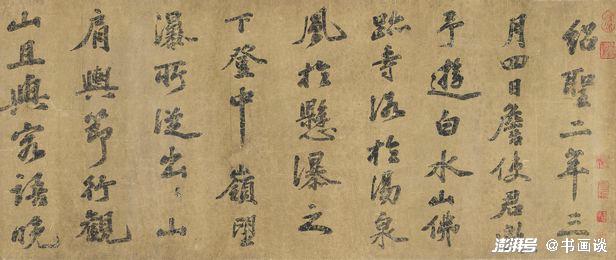 紹聖二年三
月四日詹使君邀
予遊白水山佛
跡寺浴於湯泉
風於懸瀑之
下登中嶺望
瀑所從出〻山
肩輿節行觀
山且與客語晚
澎湃号 @书画谈